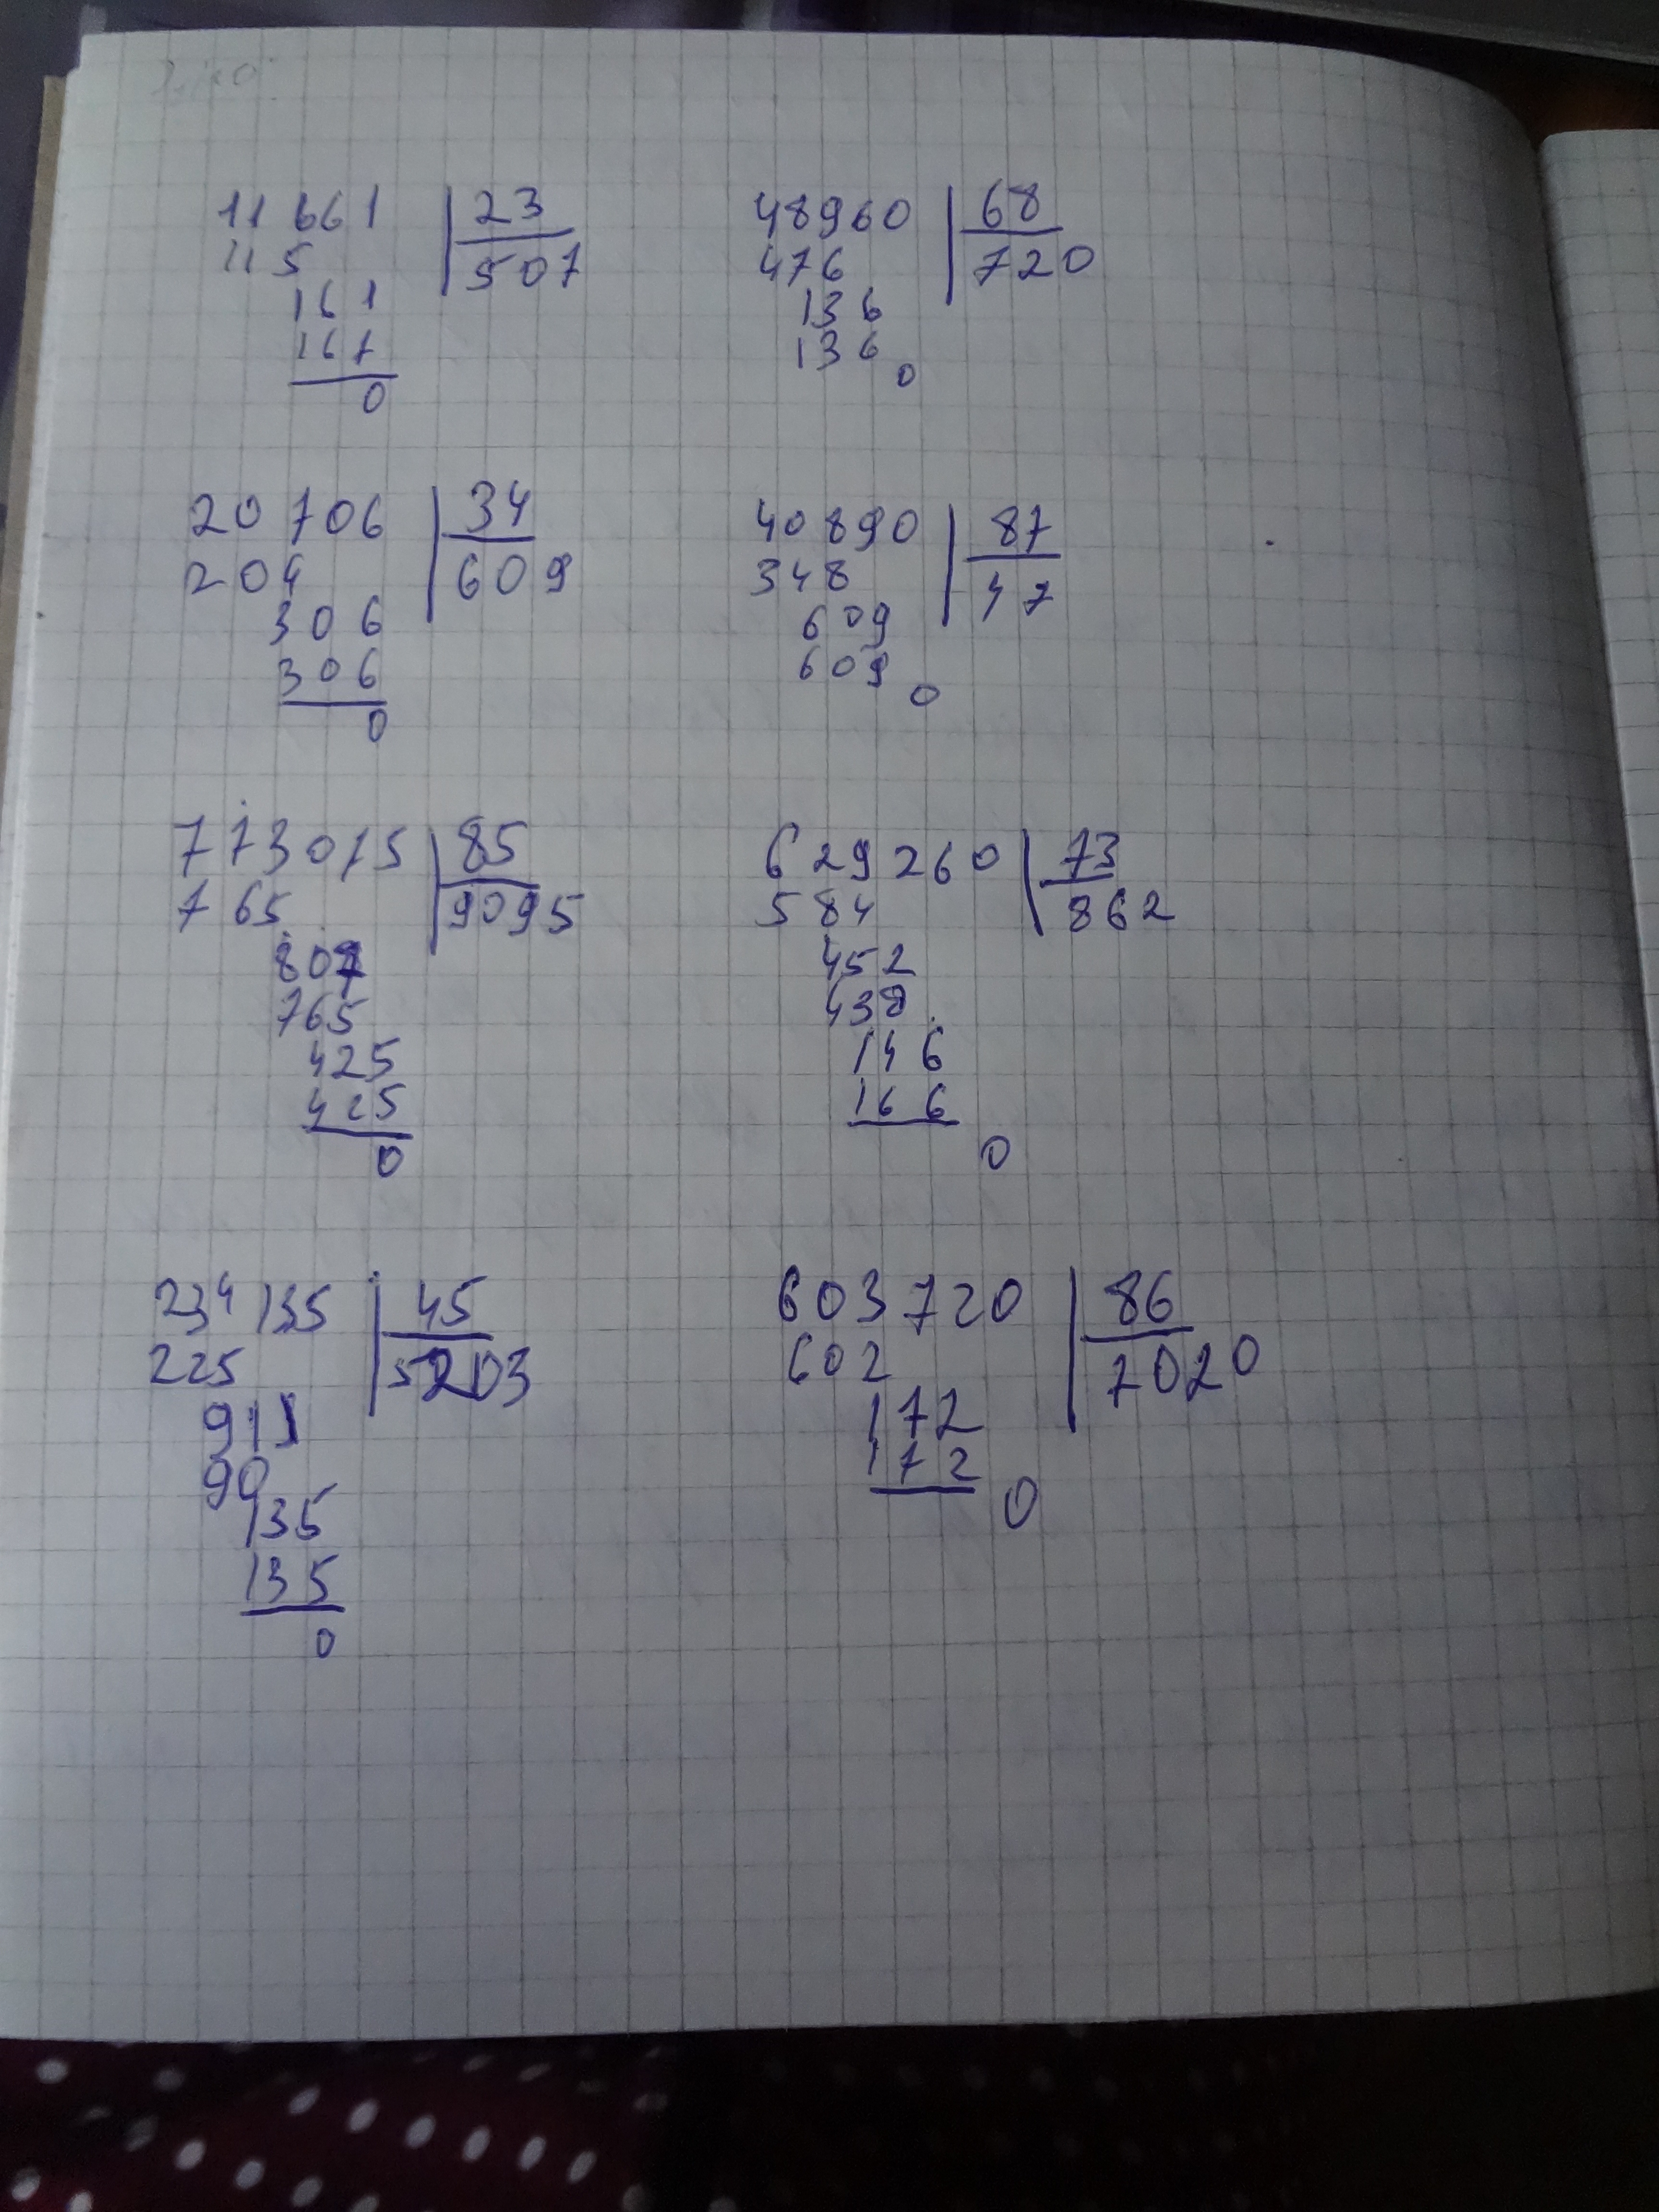 11661 23
115 507
161
161
0
48960 68
476 720
136
136
0
20706 34
204 609
306
306
0
40890 87
348 47
609
609
0
773015 85
765 9095
801
765
425
425
0
629260 73
584 862
452
438
146
166
0
234135 45
225 5203
911
90
135
135
0
603720 86
602 7020
172
172
0